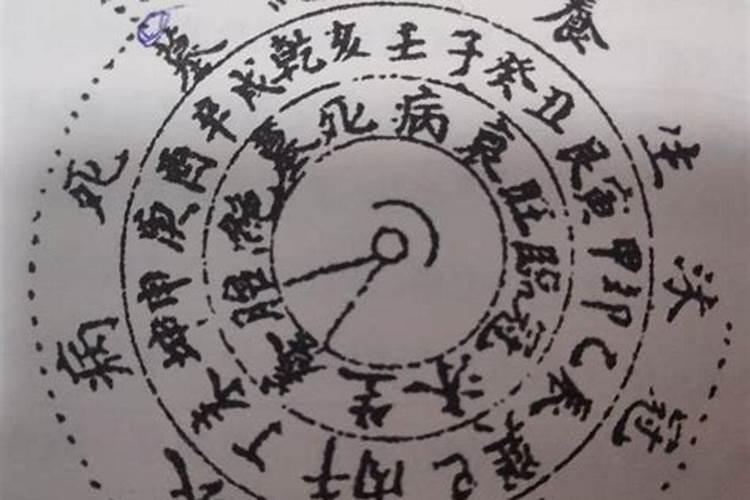 養生沐冠病死墓
壬子癸丑艮寅甲卯乙辰巽巳丙午丁未坤申庚酉辛戌乾亥
病衰旺臨冠沐生養胎絕墓死